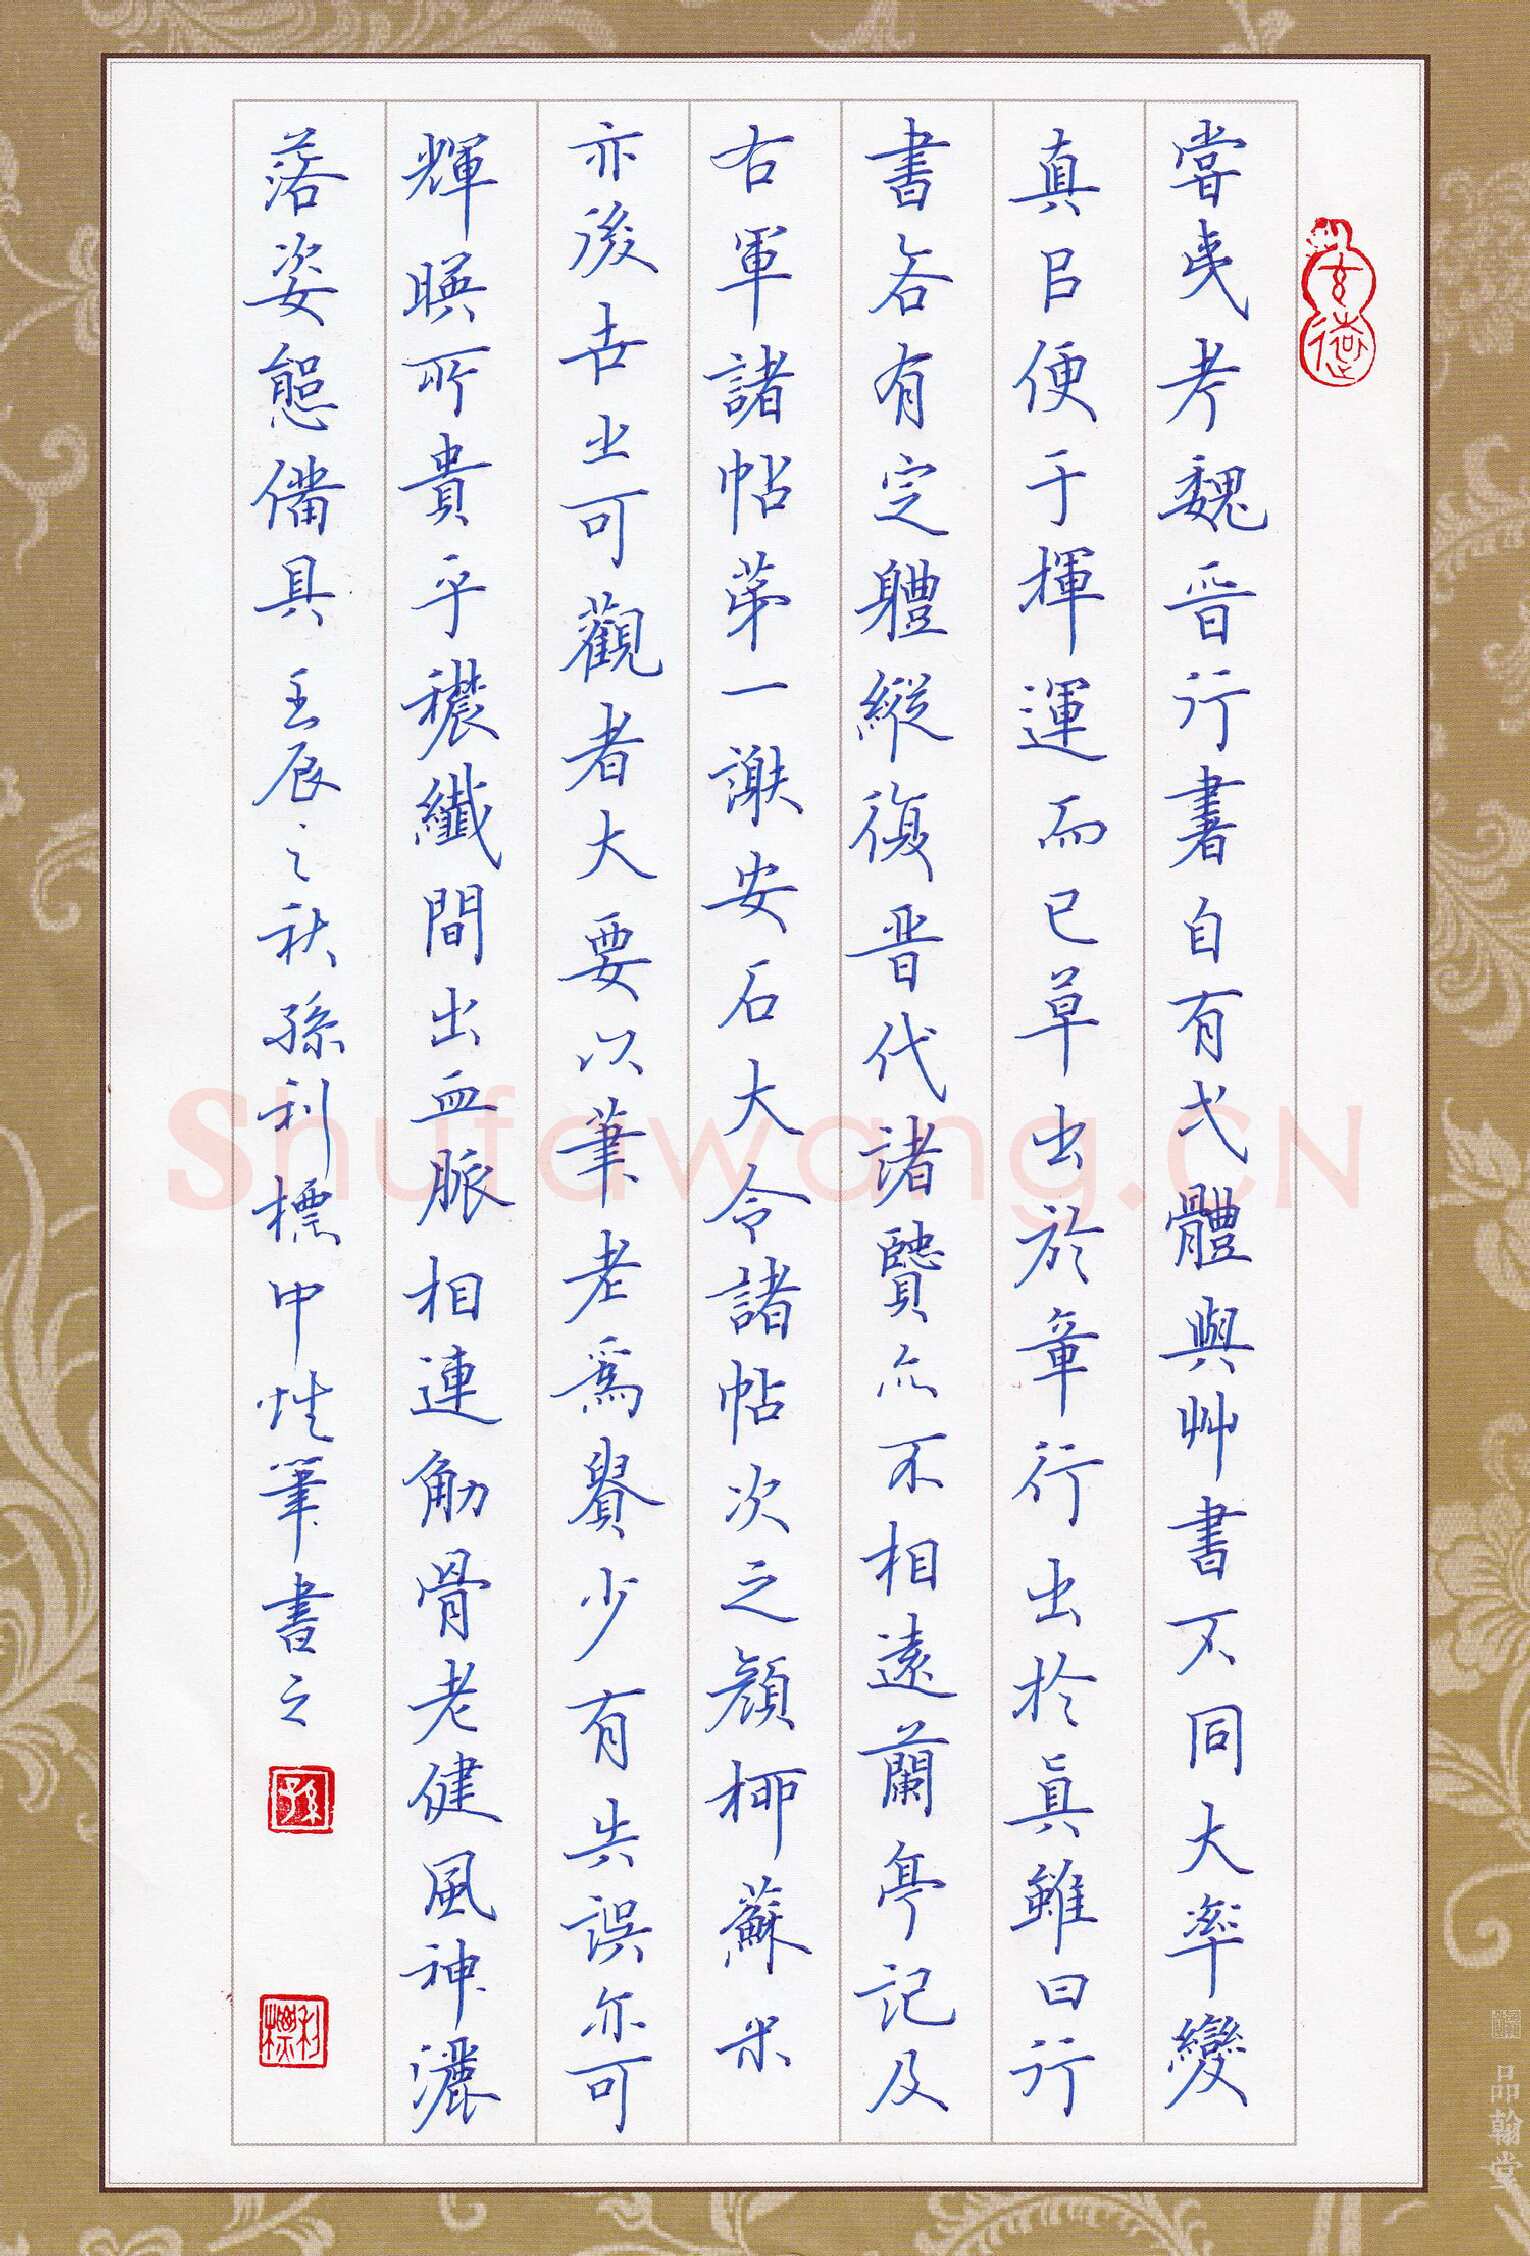 嘗夷考魏晋行書自有弌體與艸書不同大率變
真㠯便于揮運而已草出於章行出於真雖曰行
書各有定體縱復晋代諸賢亦不相遠蘭亭記及
右軍諸帖苐一謝安石大令諸帖次之顔栁蘇米
亦後世之可觀者大要以筆老爲貴少有失誤亦可
輝暎所貴乎穠纖間出血脈相連觔骨老健風神灑
落姿態備具 壬辰之秋孫利標中性筆書之
孫
利標
Shufawang.CN
品翰堂